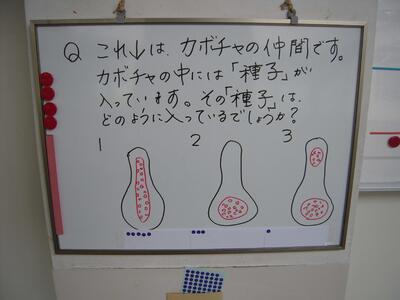 Q これ↓は、カボチャの仲間です。
カボチャの中には「種子」が
入っています。その「種子」は、
どのように入っているでしょうか?
1 2 3